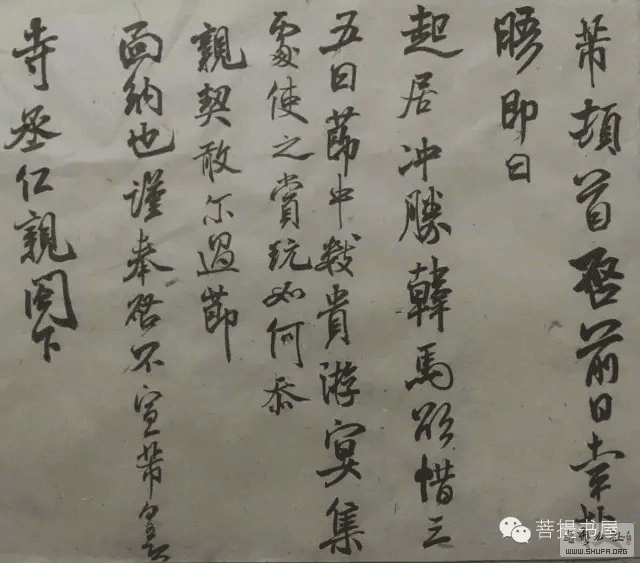 芾頓首啓前日幸披
晤即日
起居冲勝韓馬欲惜三
五日節中數貴游宴集
處使之賞玩如何忝
親契敢尔過節
面納也謹奉啓不宣芾
寺丞仁親閣下
菩提书屋
WWW.SHUFA.ORG